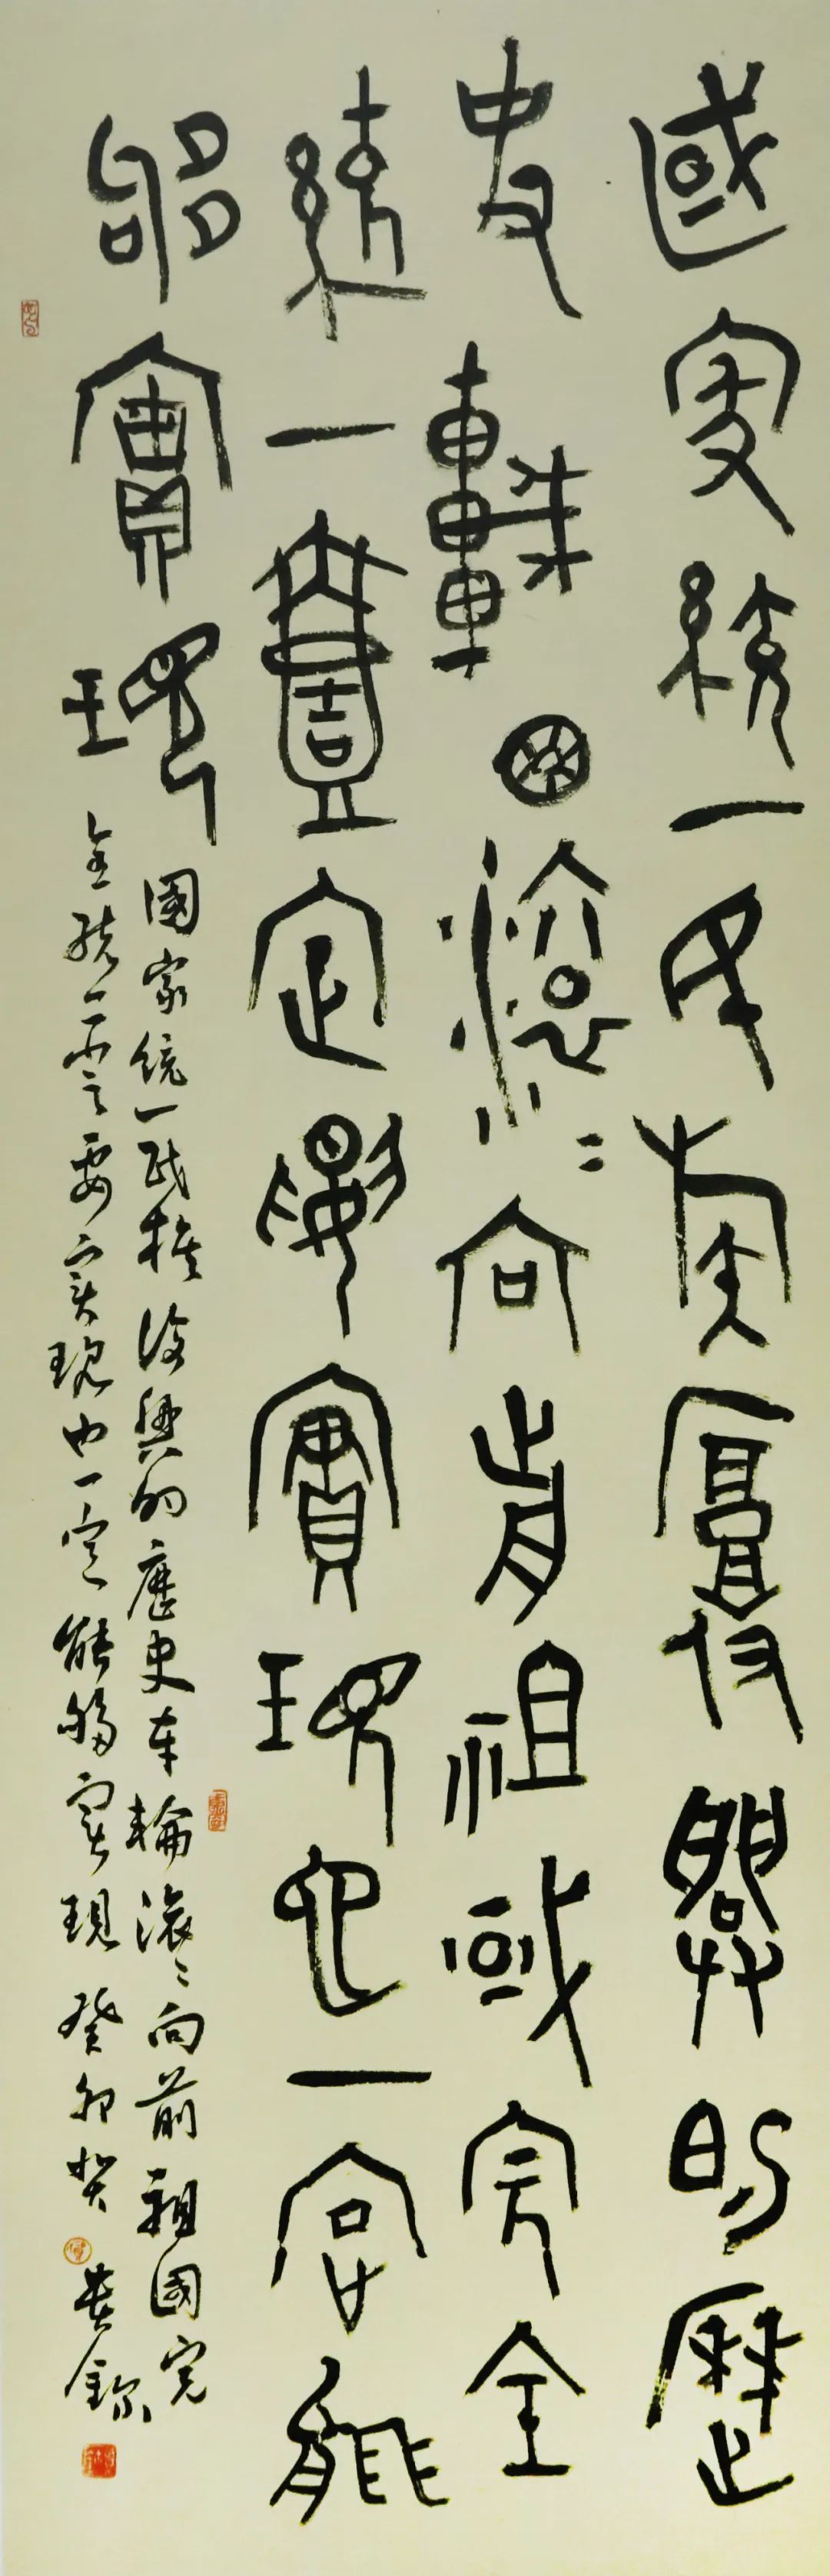 國家統一民族復興的歷
史車輪滾〻向前祖國完全
統一壹定要實現也一定能
夠實現
國家統一民族復興的歷史車輪滾〻向前祖國完
全統一一定要實現也一定能夠實現 癸卯